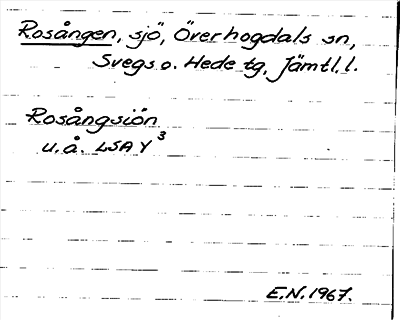 Rosången, sjö, Överhogdals sn,
Svegs o. Hede tg, Jämtl.l.
Rosångsiön
u.å. LSA Y³
E.N. 1967.